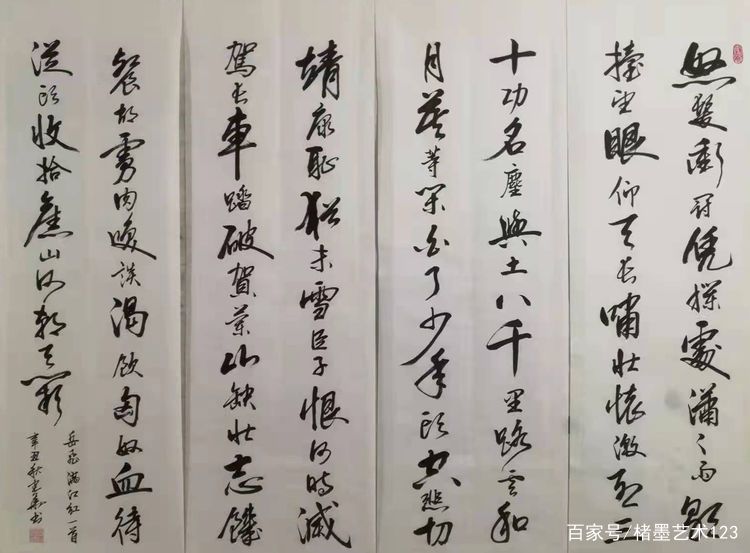 怒髮衝冠凭欄處瀟〻雨歇
擡望眼仰天长嘯壮懷激烈三
十功名塵與土八千里路雲和
月莫等閑白了少年頭空悲切
靖康恥猶未雪臣子恨何時滅
駕长車踏破賀蘭山缺壮志饑
餐胡虜肉笑談渴飲匈奴血待
從頭收拾舊山河朝天闕
岳飛滿江紅一首
辛丑秋书
百家号/楮墨艺术123